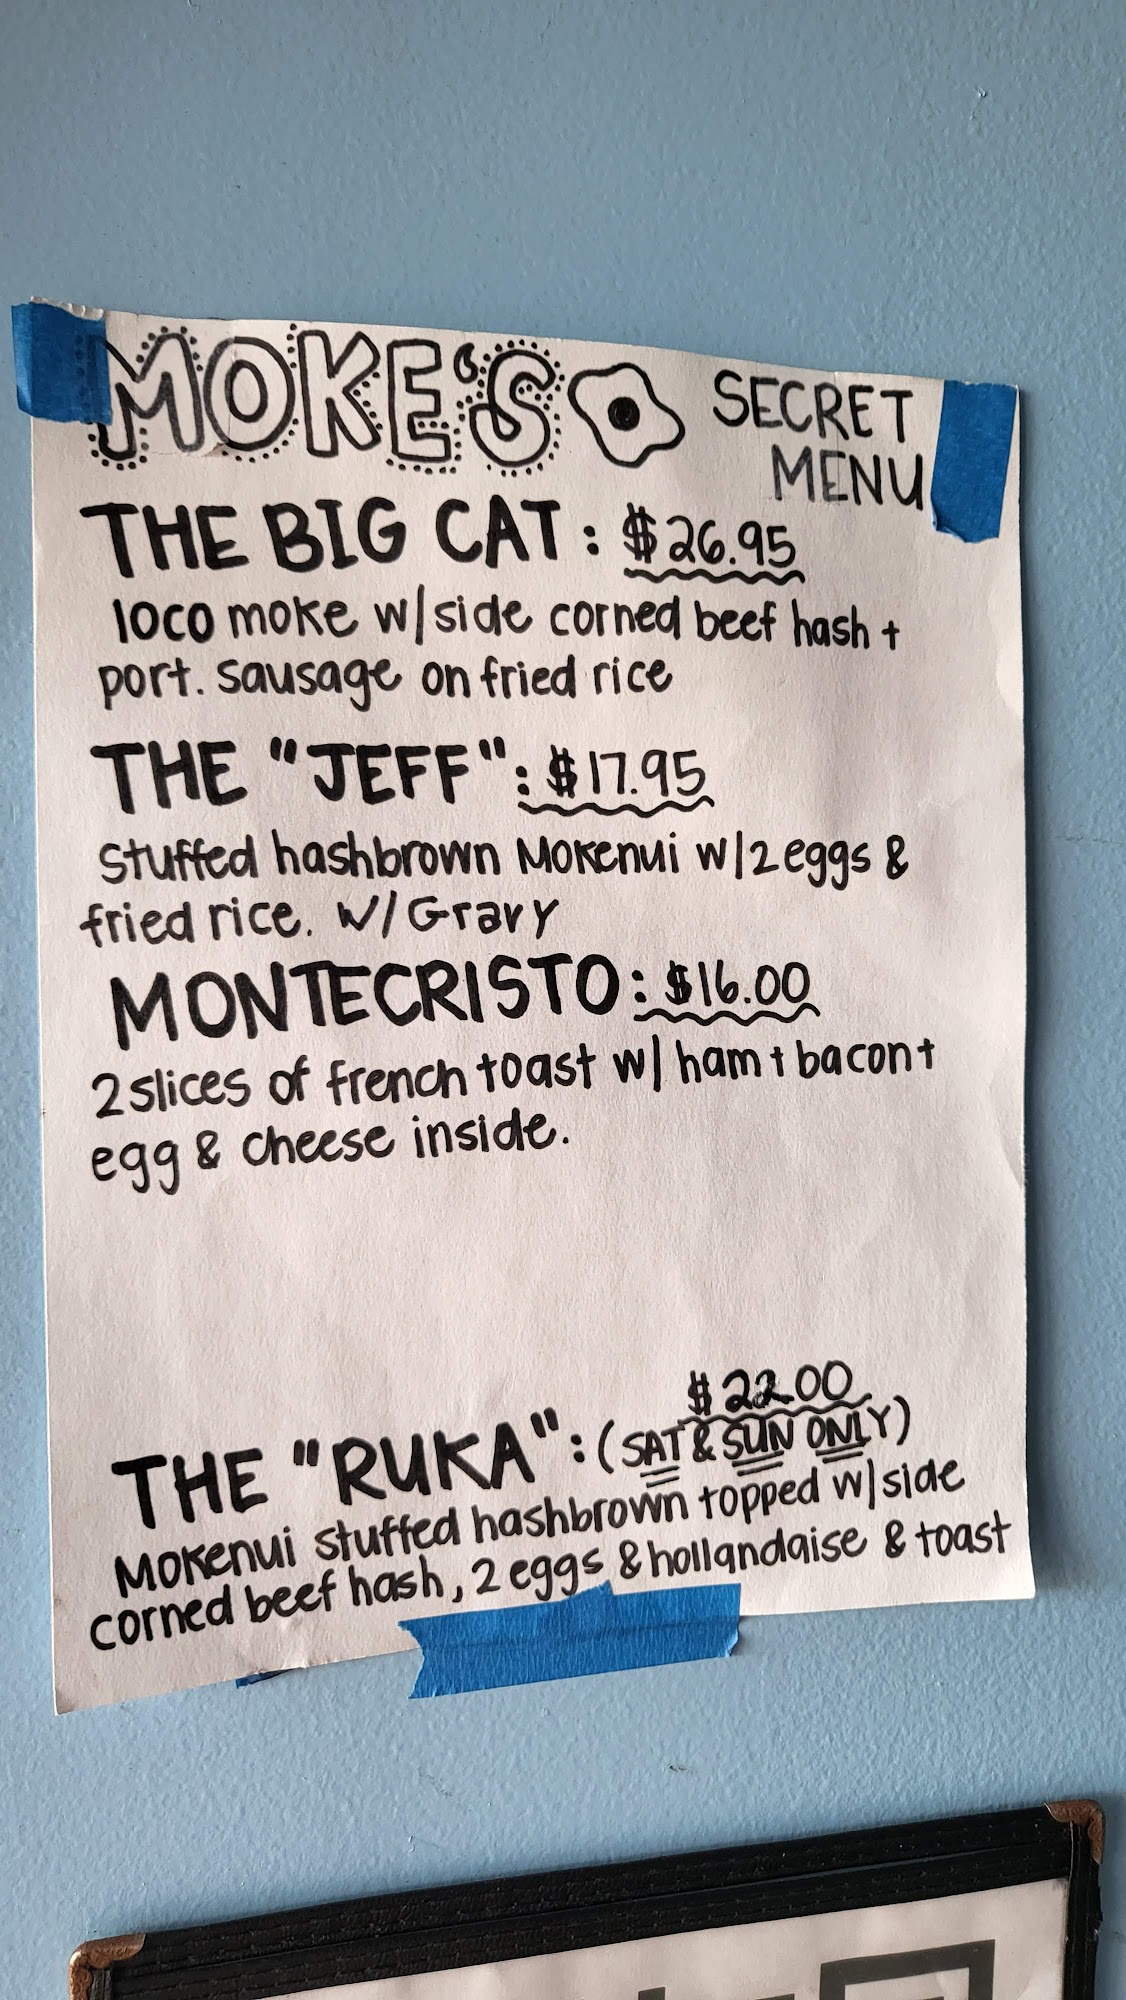 MOKE'S
SECRET
MENU
THE BIG CAT: $26.95
loco moke w/side corned beef hash +
port. sausage on fried rice
THE "JEFF": $17.95
Stuffed hashbrown Mokenui w/2 eggs &
fried rice. w/Gravy
MONTECRISTO: $16.00
2 slices of french toast w/ ham + bacon +
egg & cheese inside.
$22.00
THE "RUKA": (SAT & SUN ONLY)
Mokenui stuffed hashbrown topped w/side
corned beef hash, 2 eggs & hollandaise & toast